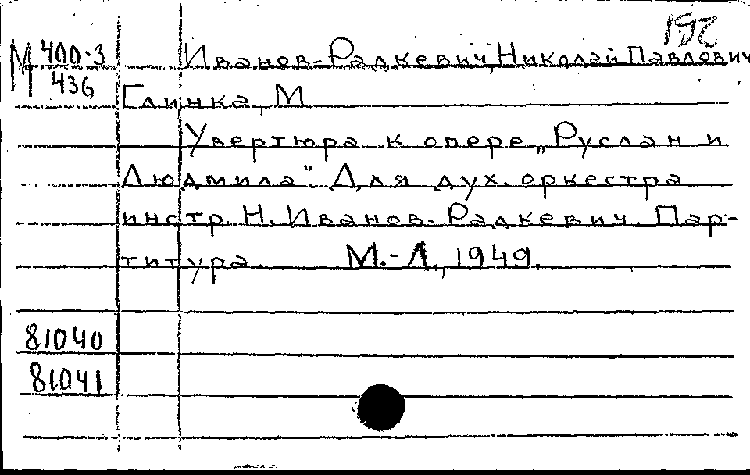 192
М 400-3
436
Иванов-Радкевич, Николай Павлович
Глинка, М.
Увертюра к опере „Руслан и
Людмила". Для дух. оркестра
инстр. Н. Иванов-Радкевич. Пар-
титура. М.-Л., 1949.
81040
81041